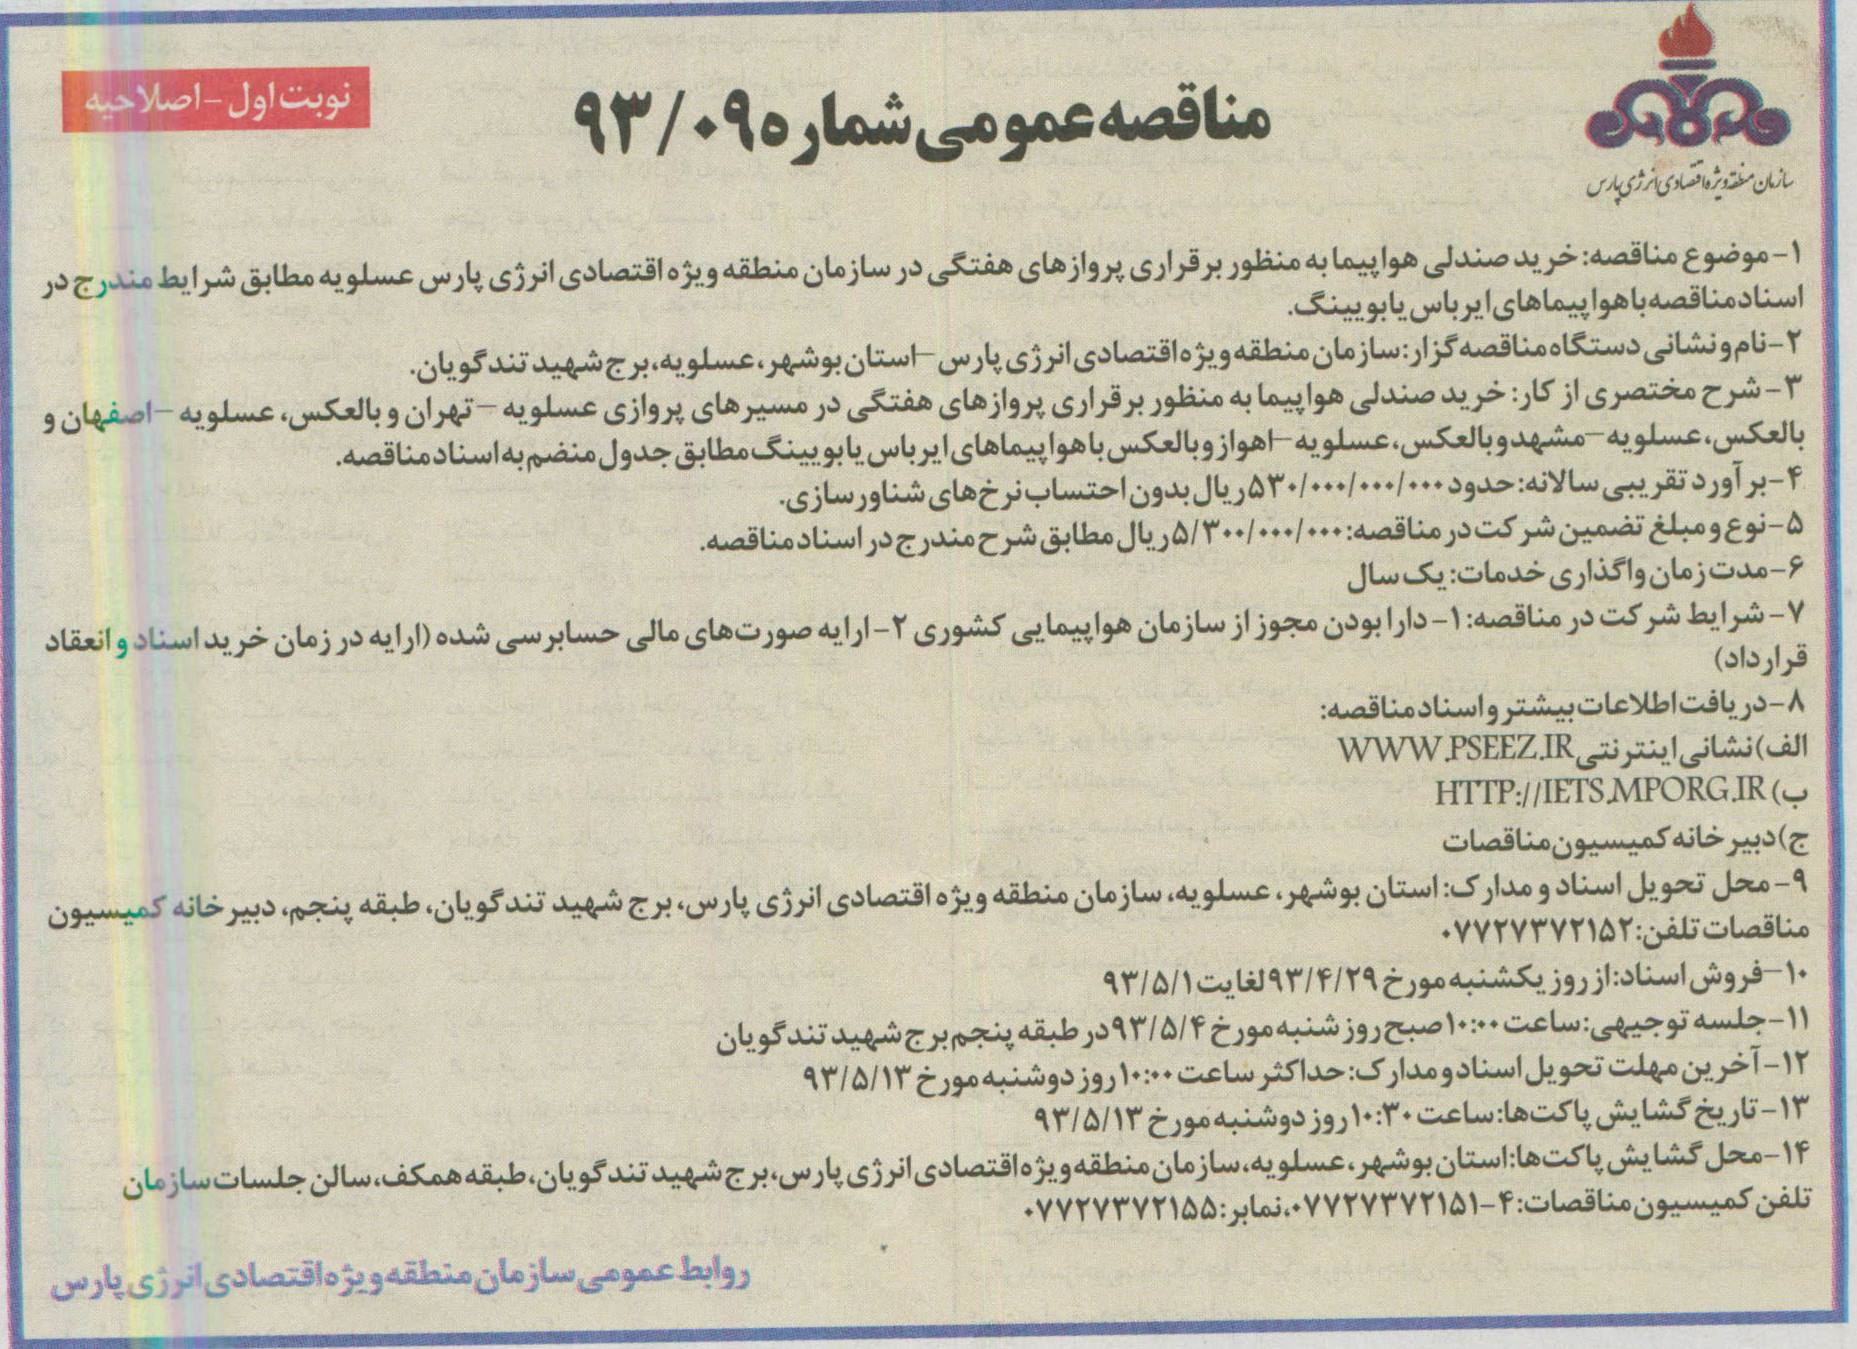 سازمان منطقه ویژه اقتصادی انرژی پارس
مناقصه عمومی شماره ۹۳/۰۹
نوبت اول - اصلاحیه
۱- موضوع مناقصه: خرید صندلی هواپیما به منظور برقراری پروازهای هفتگی در سازمان منطقه ویژه اقتصادی انرژی پارس عسلویه مطابق شرایط مندرج در
اسناد مناقصه با هواپیماهای ایرباس یا بویینگ.
۲- نام و نشانی دستگاه مناقصه گزار: سازمان منطقه ویژه اقتصادی انرژی پارس – استان بوشهر، عسلویه، برج شهید تندگویان.
۳- شرح مختصری از کار: خرید صندلی هواپیما به منظور برقراری پروازهای هفتگی در مسیرهای پروازی عسلویه – تهران و بالعکس، عسلویه – اصفهان و
بالعکس، عسلویه – مشهد و بالعکس، عسلویه – اهواز و بالعکس با هواپیماهای ایرباس یا بویینگ مطابق جدول منضم به اسناد مناقصه.
۴- برآورد تقریبی سالانه: حدود ۵۳۰/۰۰۰/۰۰۰/۰۰۰ ریال بدون احتساب نرخ‌های شناورسازی.
۵- نوع و مبلغ تضمین شرکت در مناقصه: ۵/۳۰۰/۰۰۰/۰۰۰ ریال مطابق شرح مندرج در اسناد مناقصه.
۶- مدت زمان واگذاری خدمات: یک سال
۷- شرایط شرکت در مناقصه: ۱- دارا بودن مجوز از سازمان هواپیمایی کشوری ۲- ارایه صورت‌های مالی حسابرسی شده (ارایه در زمان خرید اسناد و انعقاد
قرارداد)
۸- دریافت اطلاعات بیشتر و اسناد مناقصه:
الف) نشانی اینترنتی WWW.PSEEZ.IR
ب) HTTP://IETS.MPORG.IR
ج) دبیرخانه کمیسیون مناقصات
۹- محل تحویل اسناد و مدارک: استان بوشهر، عسلویه، سازمان منطقه ویژه اقتصادی انرژی پارس، برج شهید تندگویان، طبقه پنجم، دبیرخانه کمیسیون
مناقصات تلفن: ۰۷۷۲۷۳۷۲۱۵۲
۱۰- فروش اسناد: از روز یکشنبه مورخ ۹۳/۴/۲۹ لغایت ۹۳/۵/۱
۱۱- جلسه توجیهی: ساعت ۱۰:۰۰ صبح روز شنبه مورخ ۹۳/۵/۴ در طبقه پنجم برج شهید تندگویان
۱۲- آخرین مهلت تحویل اسناد و مدارک: حداکثر ساعت ۱۰:۰۰ روز دوشنبه مورخ ۹۳/۵/۱۳
۱۳- تاریخ گشایش پاکت‌ها: ساعت ۱۰:۳۰ روز دوشنبه مورخ ۹۳/۵/۱۳
۱۴- محل گشایش پاکت‌ها: استان بوشهر، عسلویه، سازمان منطقه ویژه اقتصادی انرژی پارس، برج شهید تندگویان، طبقه همکف، سالن جلسات سازمان
تلفن کمیسیون مناقصات: ۴-۰۷۷۲۷۳۷۲۱۵۱، نمابر: ۰۷۷۲۷۳۷۲۱۵۵
روابط عمومی سازمان منطقه ویژه اقتصادی انرژی پارس